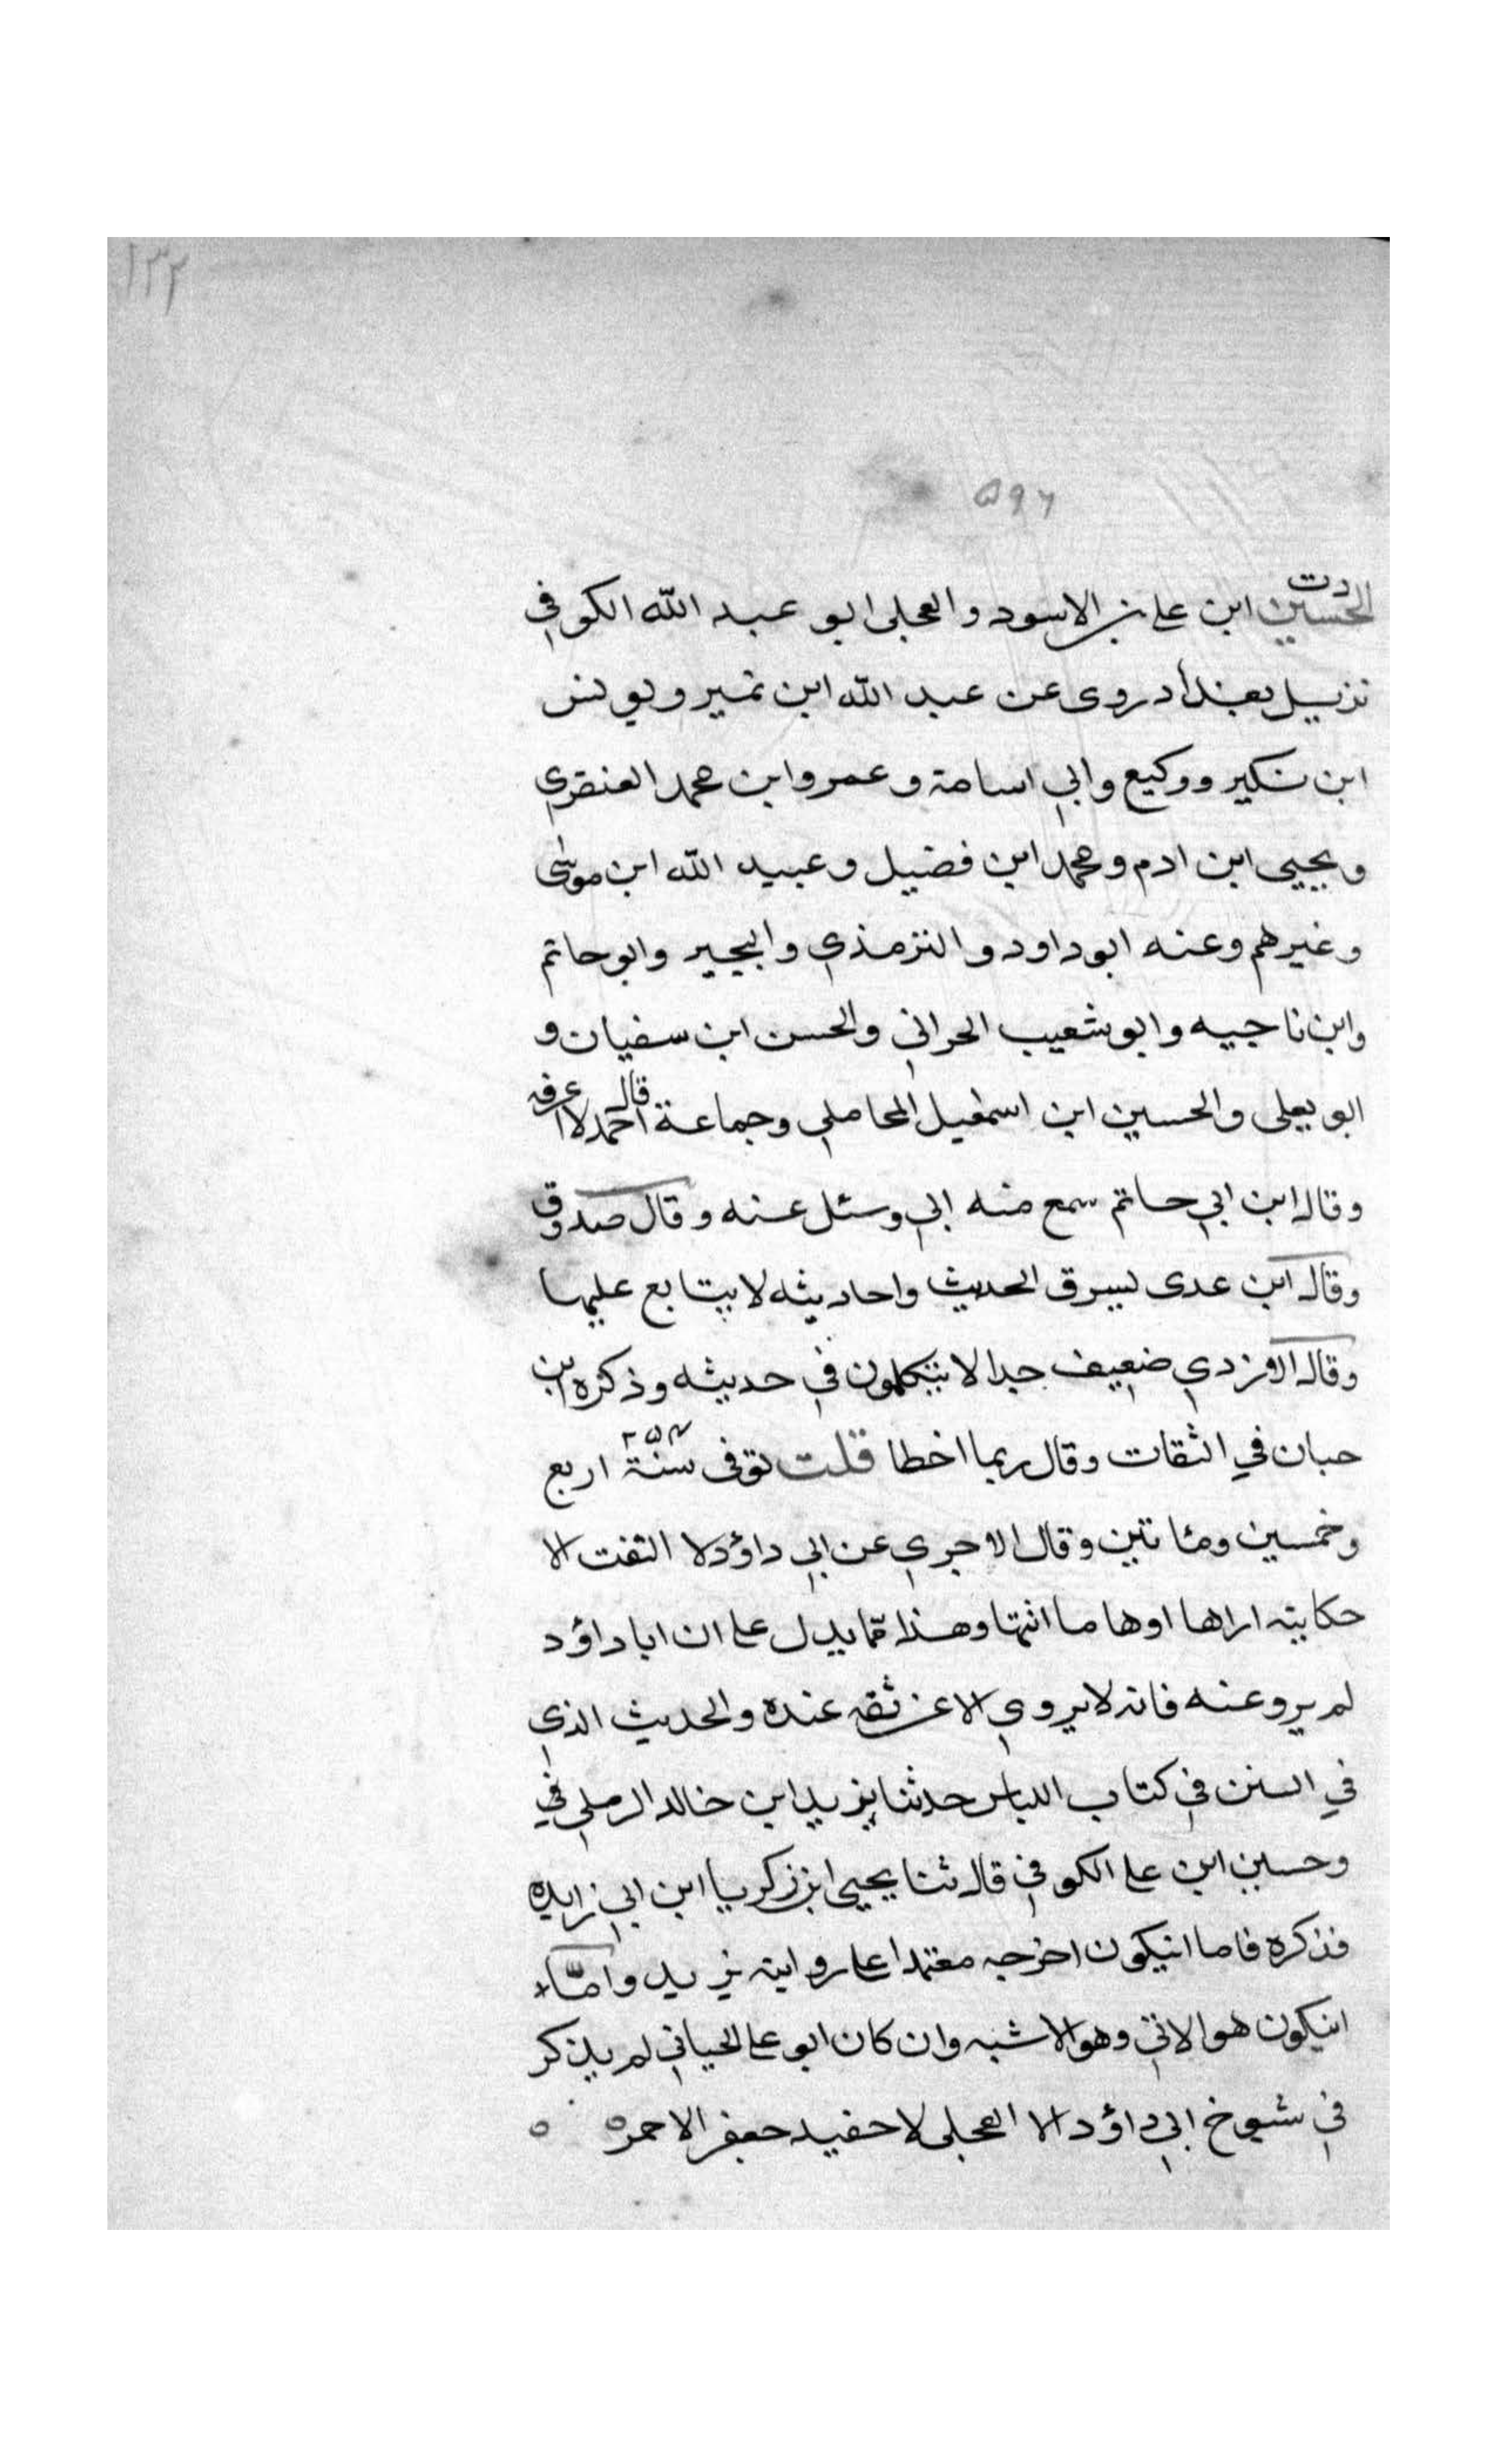 ١٣٢
٥٩٦
دت
الحسين ابن على بن الاسود والعجلى ابو عبد الله الكوفي
نزيل بغداد روى عن عبد الله ابن نمير ويونس
ابن بكير ووكيع وابي اسامة وعمرو ابن محمد العنقزي
ويحيى ابن ادم ومحمد ابن فضيل وعبيد الله ابن موسى
وغيرهم وعنه ابو داود والترمذي والبجير وابو حاتم
وابن ناجيه وابو شعيب الحراني والحسن ابن سفيان و
ابو يعلى والحسين ابن اسمعيل المحاملي وجماعة قال احمد لا اعرفه
وقال ابن ابي حاتم سمع منه ابي وسئل عنه وقال صدوق
وقال ابن عدى يسرق الحديث واحاديثه لا يتابع عليها
وقال الازدي ضعيف جدا لا يتكلمون في حديثه وذكره ابن
حبان في الثقات وقال ربما اخطا قلت توفى سنة ٢٥٤ اربع
وخمسين ومئاتين وقال الاجري عن ابي داؤد لا التفت الا
حكايته اراها اوهاما انتها وهذا مما يدل على ان ابا داؤد
لم يرو عنه فانه لا يروي الا عن ثقه عنده والحديث الذي
في السنن في كتاب اللباس حدثنا يزيد ابن خالد الرملي في
وحسين ابن على الكوفي قال ثنا يحيى ابن زكريا ابن ابي زايده
فذكره فاما انيكون اخرجه معتمدا على رواية يزيد واما
انيكون هو الاتي وهو الاشبه وان كان ابو على الحياني لم يذكر
في شيوخ ابي داؤد الا العجلى لا حفيد جعفر الاحمر ه ه